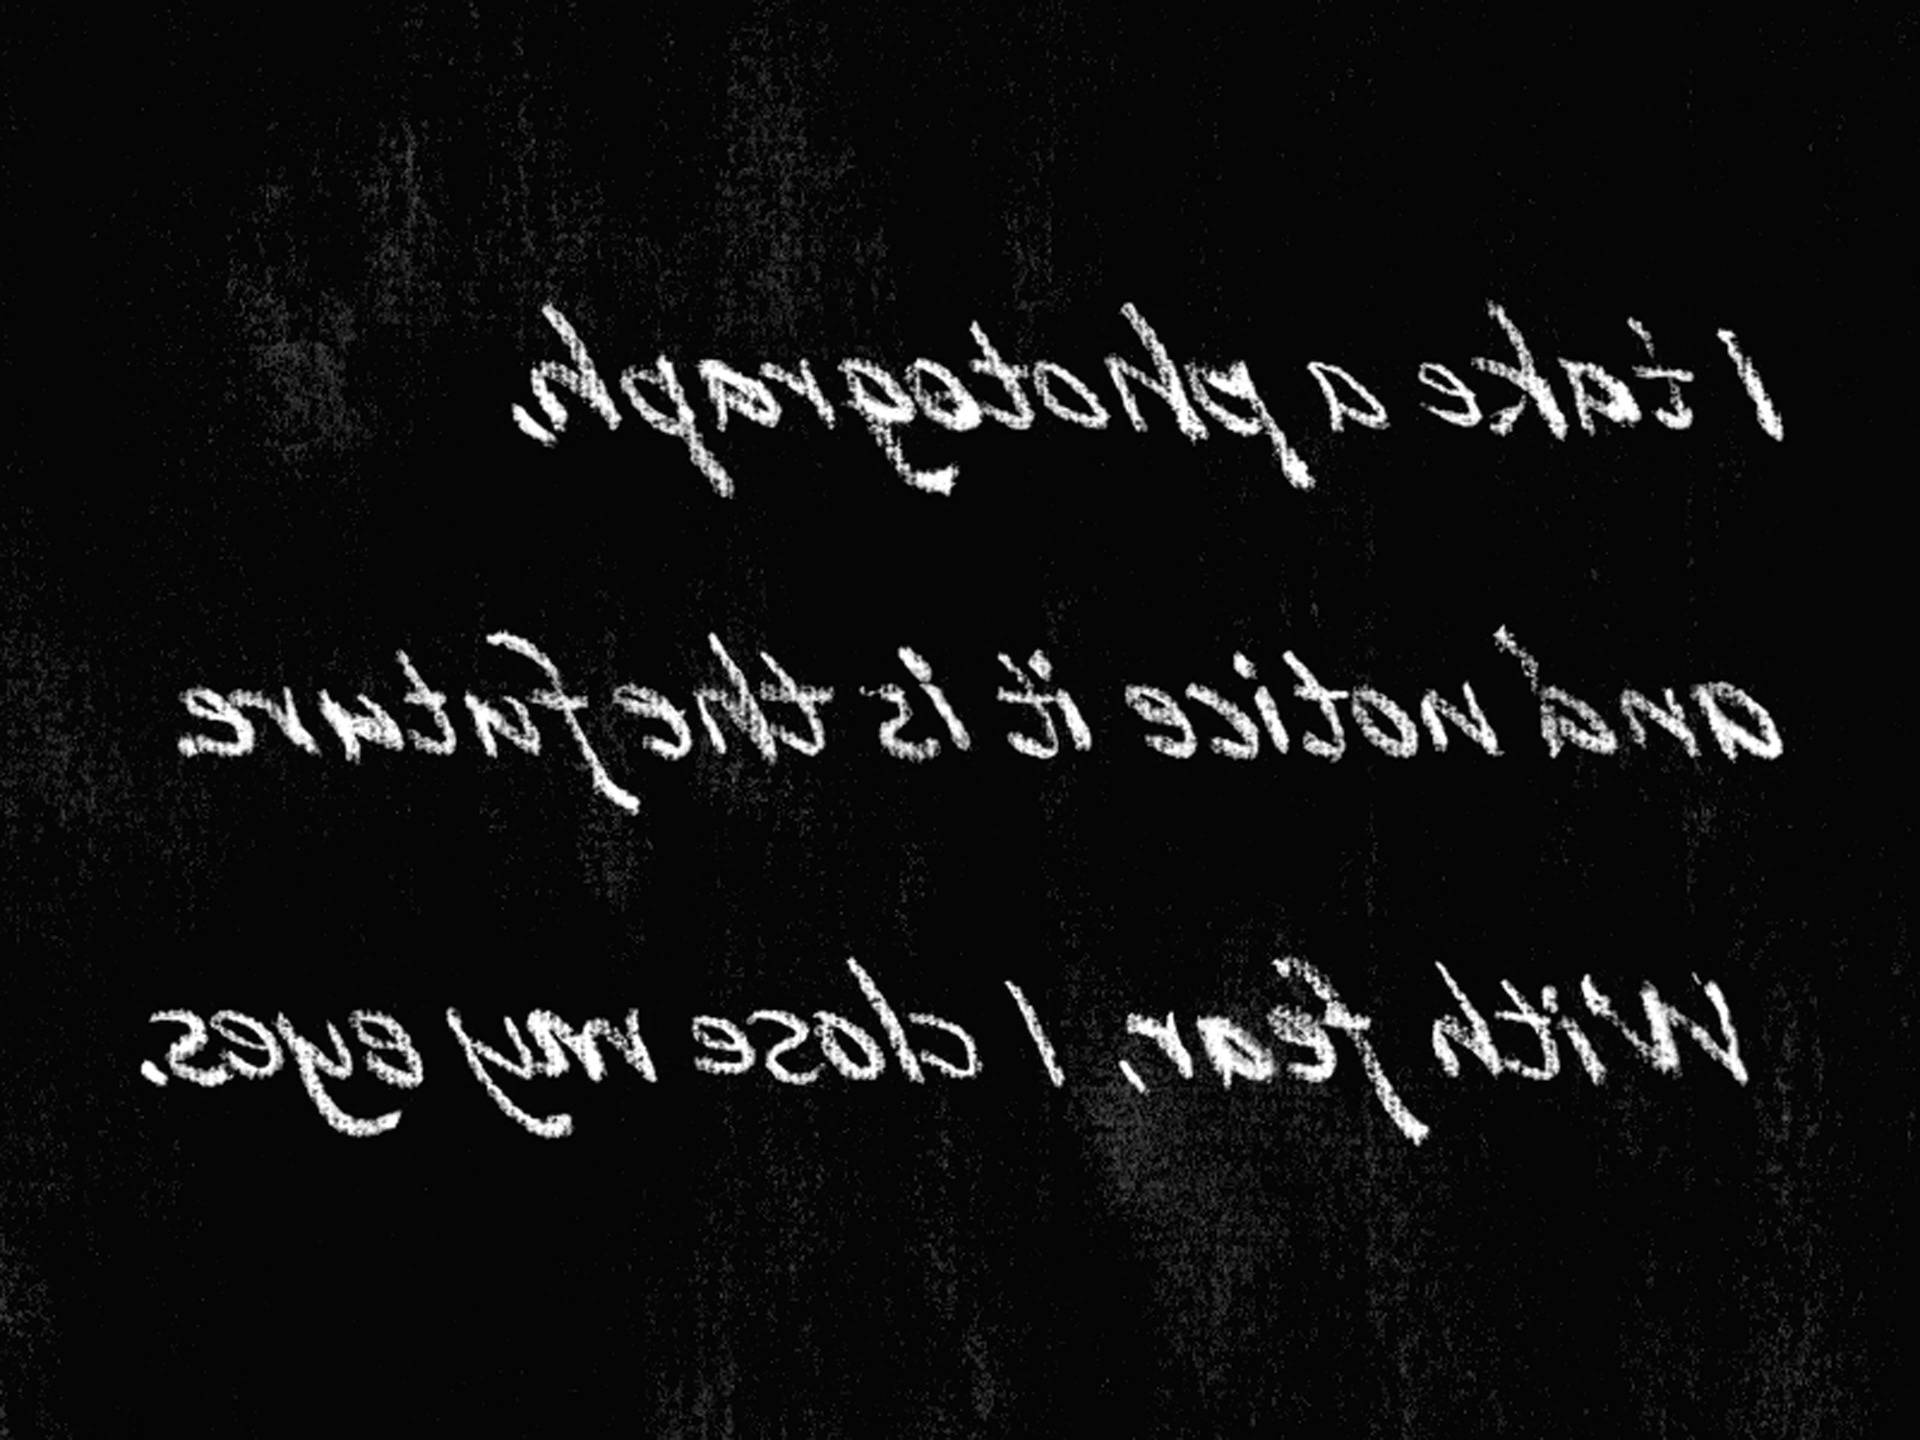 I take a photograph,
and notice it is the future
With fear, I close my eyes.